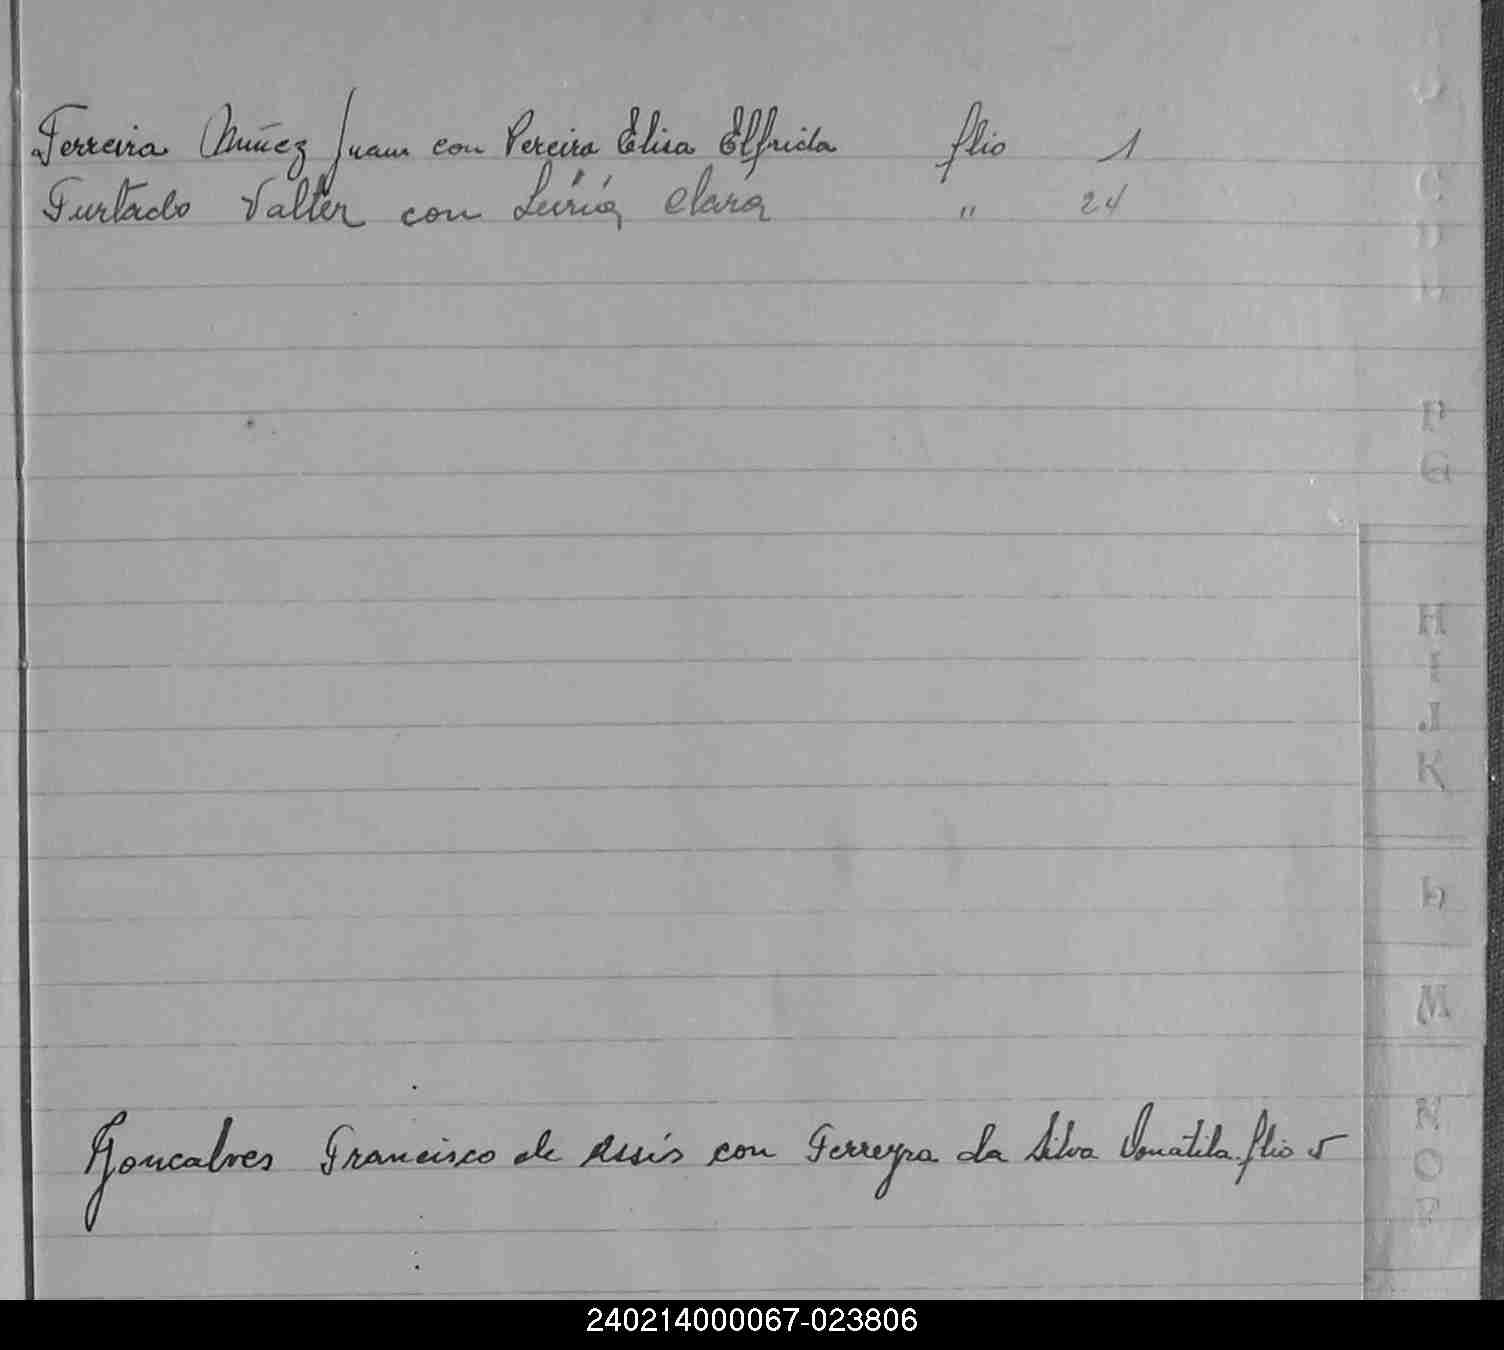 Ferreira Núñez Juan con Pereira Elisa Elfrida flio 1
Furtado Valter con Leiria Clara " 24
F
G
H
I
J
K
L
M
N
O
P
Goncalves Francisco de Assis con Ferreyra da Silva Donatila flio 5
240214000067-023806